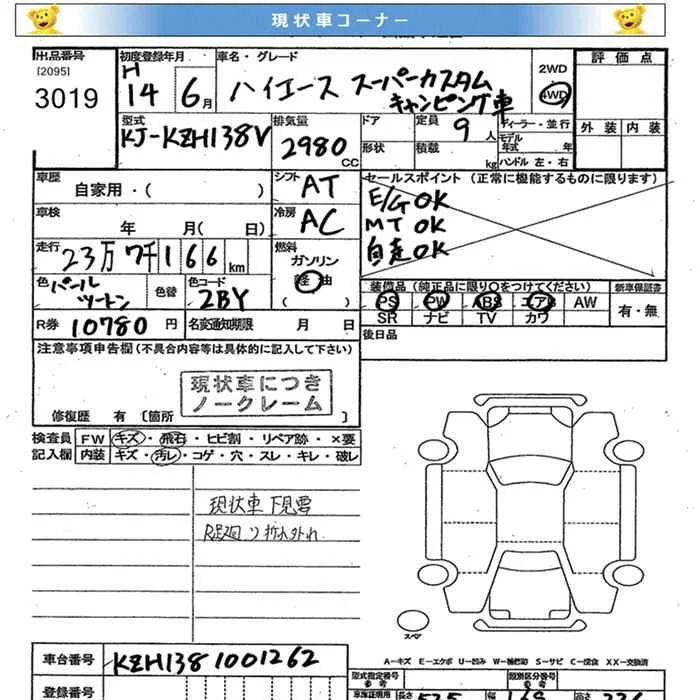 現状車コーナー
出品番号 初度登録年月 車名・グレード 2WD 評価点
[2095] H
3019 14 6月 ハイエース スーパーカスタム 4WD
キャンピング車
型式 排気量 ドア 定員 9人 ディーラー・並行 外装 内装
KJ-KZH138V 2980 CC 形状 積載 kg モデル年式 年
ハンドル 左・右
車歴 シフト AT セールスポイント (正常に機能するものに限ります)
自家用・( ) E/G OK
車検 冷房 AC MT OK
年 月( 日) 自走OK
走行 燃料
23万 7千166km ガソリン
軽油
( )
色 パール 色替 色コード 装備品 (純正品に限り○をつけてください) 新車保証書
ツートン 2BY PS PW ABS エアB AW 有・無
SR ナビ TV カワ
R券 10780 円 名変通知期限 月 日 後日品
注意事項申告欄 (不具合内容等は具体的に記入して下さい)
現状車につき
ノークレーム
修復歴 有 [箇所 ]
検査員 FW キズ・飛石・ヒビ割・リペア跡・×要
記入欄 内装 キズ・汚レ・コゲ・穴・スレ・キレ・破レ
現状車 下見
スペア
車台番号 KZH138 1001262 A-キズ E-エクボ U-凹み S-サビ C-腐食 XX-交換済
型式指定番号 類別区分番号
登録番号 車庫証明用 長さ 幅 高さ